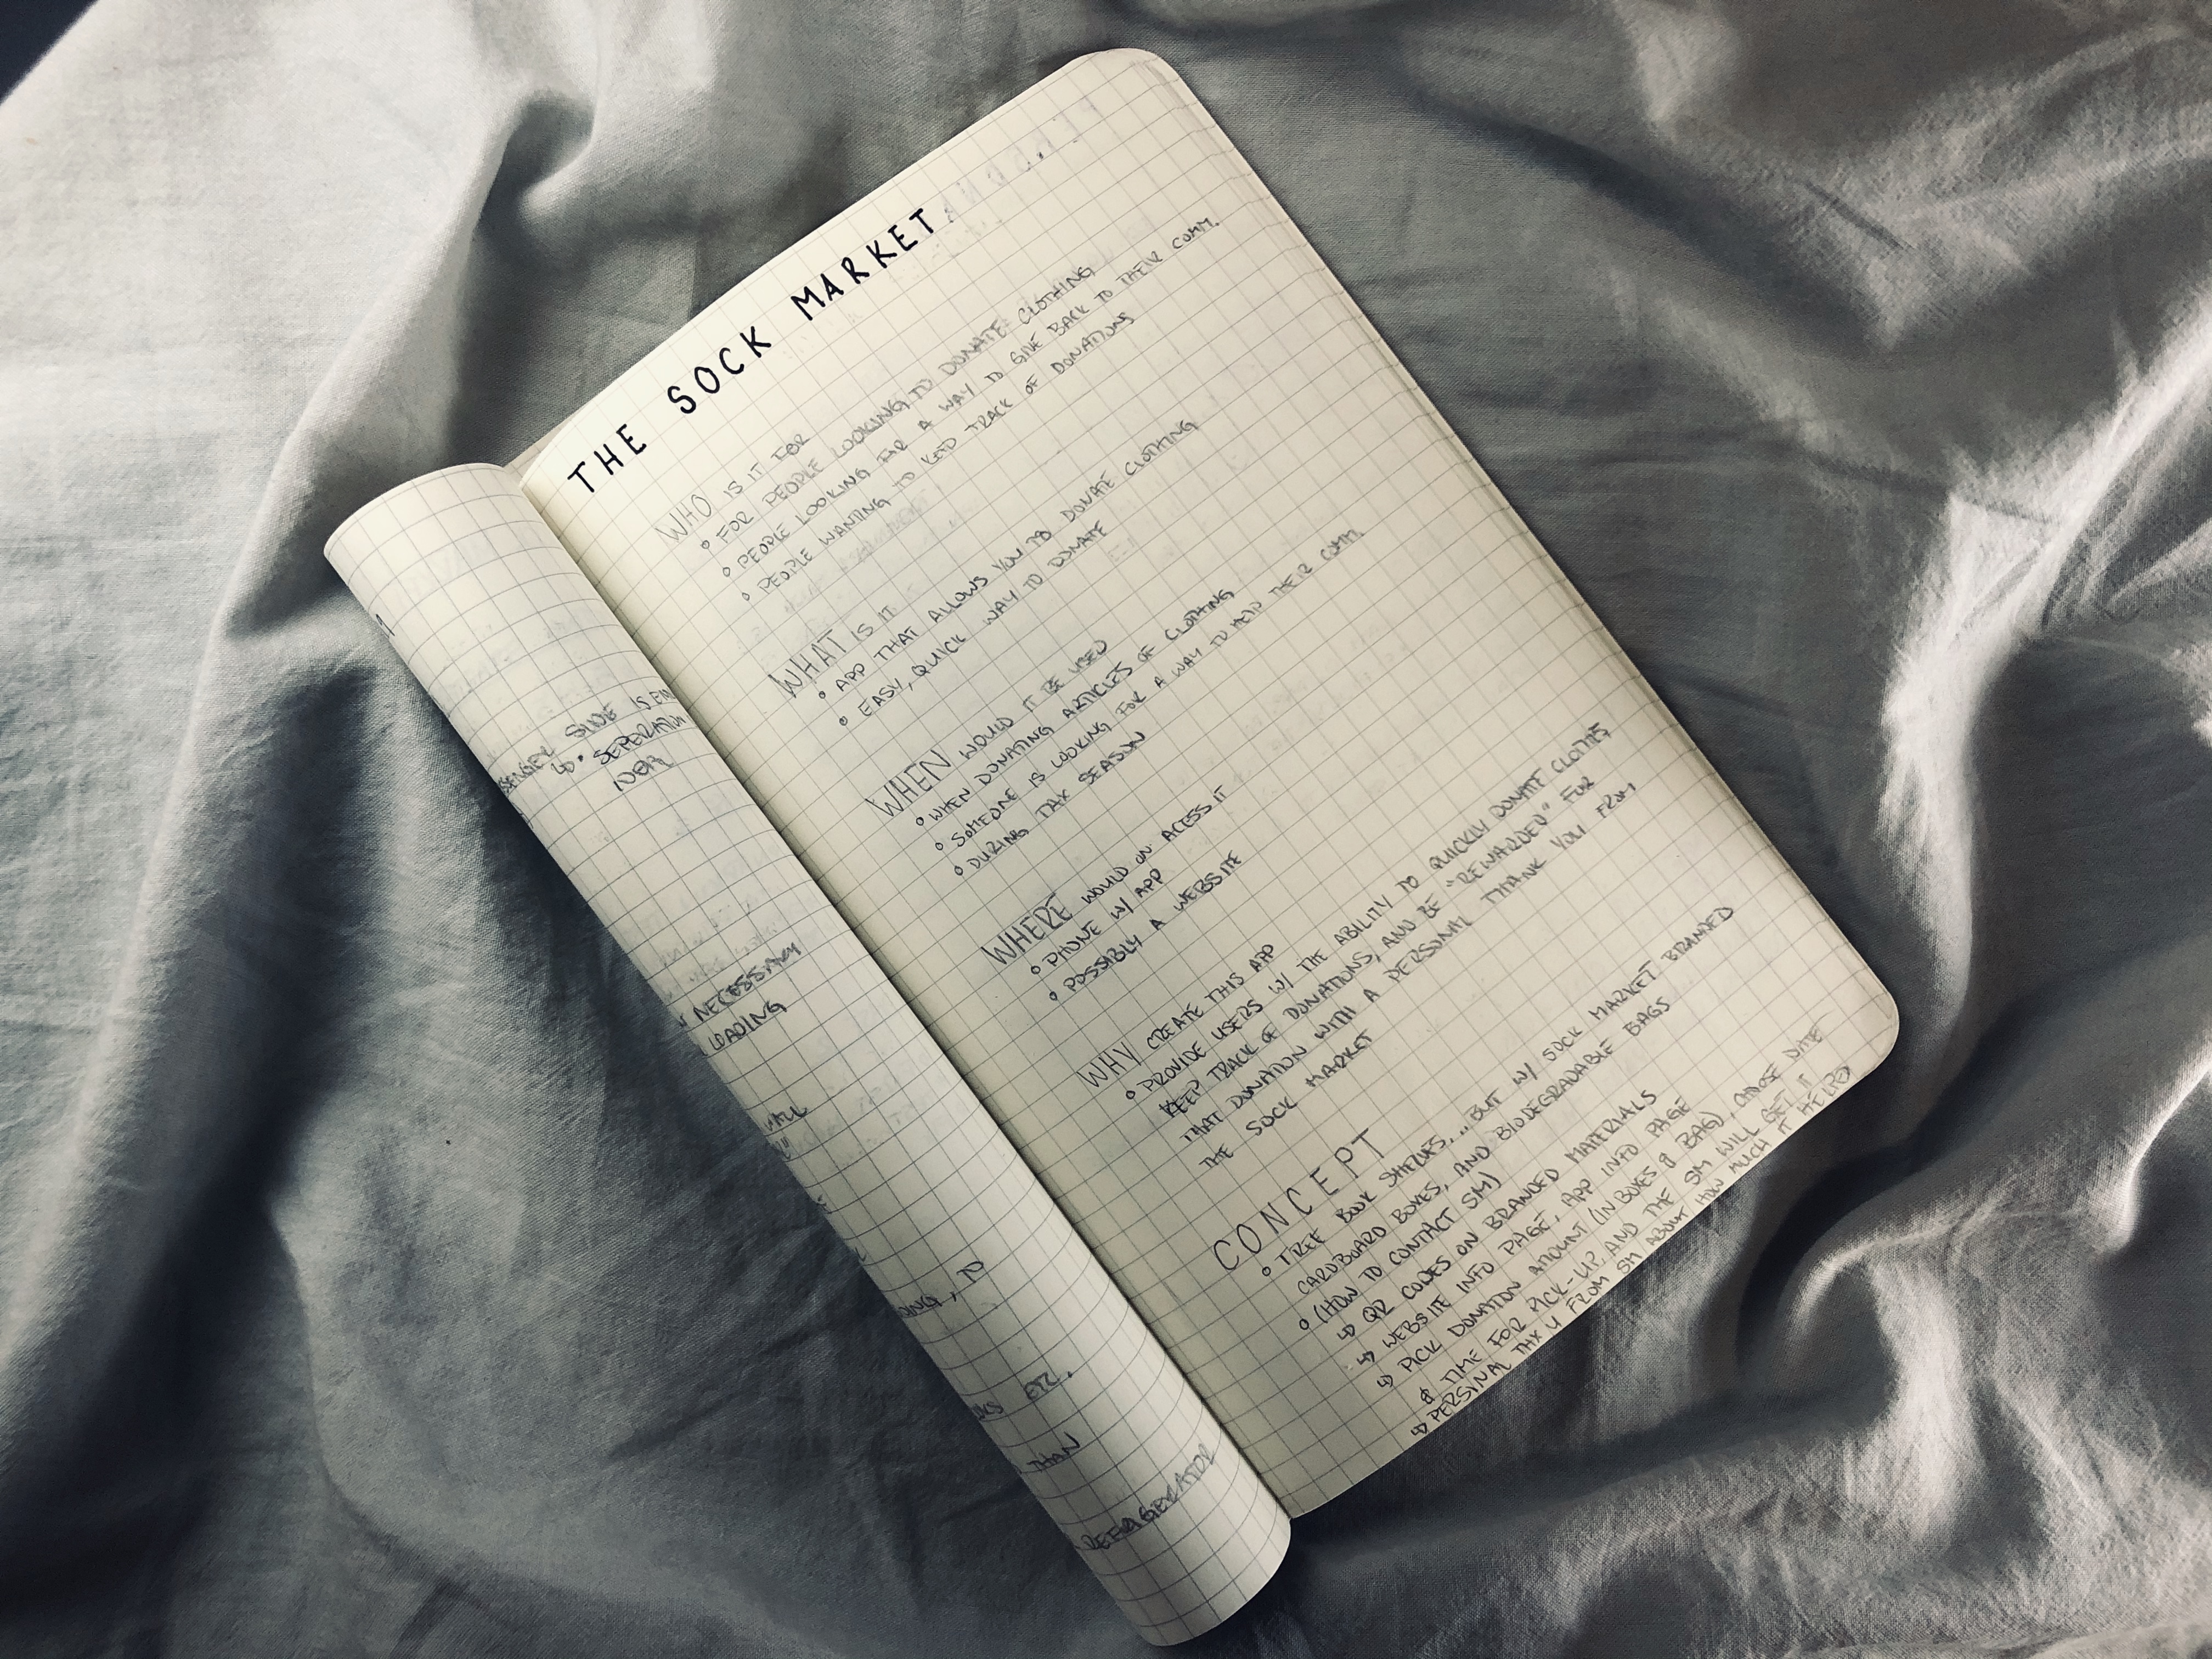 THE SOCK MARKET.
WHO IS IT FOR
• FOR PEOPLE LOOKING TO DONATE CLOTHING
• PEOPLE LOOKING FOR A WAY TO GIVE BACK TO THEIR COMM.
• PEOPLE WANTING TO KEEP TRACK OF DONATIONS
WHAT IS IT
• APP THAT ALLOWS YOU TO DONATE CLOTHING
• EASY, QUICK WAY TO DONATE
WHEN WOULD IT BE USED
• WHEN DONATING ARTICLES OF CLOTHING
• SOMEONE IS LOOKING FOR A WAY TO HELP THEIR COMM.
• DURING TAX SEASON
WHERE WOULD UN ACESS IT
• PHONE W/ APP
• POSSIBLY A WEBSITE
WHY CREATE THIS APP
• PROVIDE USERS W/ THE ABILITY TO QUICKLY DONATE CLOTHES,
KEEP TRACK OF DONATIONS, AND BE "REWARDED" FOR
THAT DONATION WITH A PERSONAL THANK YOU FROM
THE SOCK MARKET
CONCEPT
• BOOK SHELVES, ... BUT W/ SOCK MARKET BRANDED
CARDBOARD BOXES, AND BIODEGRADABLE BAGS
• (HOW TO CONTACT SM)
↳ QR CODES ON BRANDED MATERIALS
↳ WEBSITE INFO PAGE, APP INFO PAGE
↳ PICK DONATION AMOUNT (IN BOXES & BAG), CHOOSE DATE
& TIME FOR PICK-UP, AND THE SM WILL GET IT
↳ PERSINAL THX U FROM SM ABOUT HOW MUCH IT HELPED
SIDE IS
↳ • SEPERATION
NECESSARY
LOADING
, TO
ETC.
THAN
REFRIGERATOR